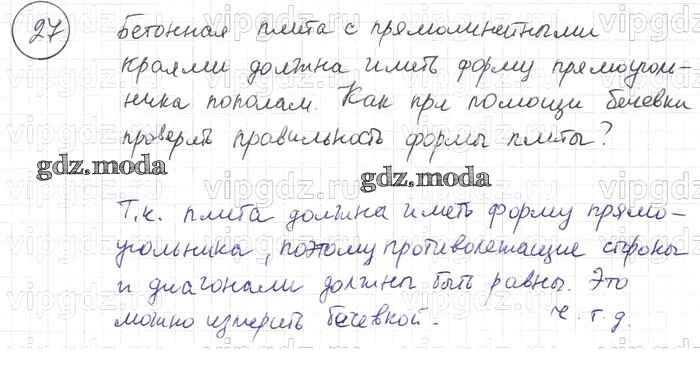 27 Бетонная плита с прямолинейными
краями должна иметь форму прямоуголь-
ника пополам. Как при помощи бечевки
проверить правильность формы плиты?
gdz.moda
gdz.moda
Т.к. плита должна иметь форму прямо-
угольника, поэтому противолежащие стороны
и диагонали должны быть равны. Это
можно измерить бечевкой. ч.т.д.